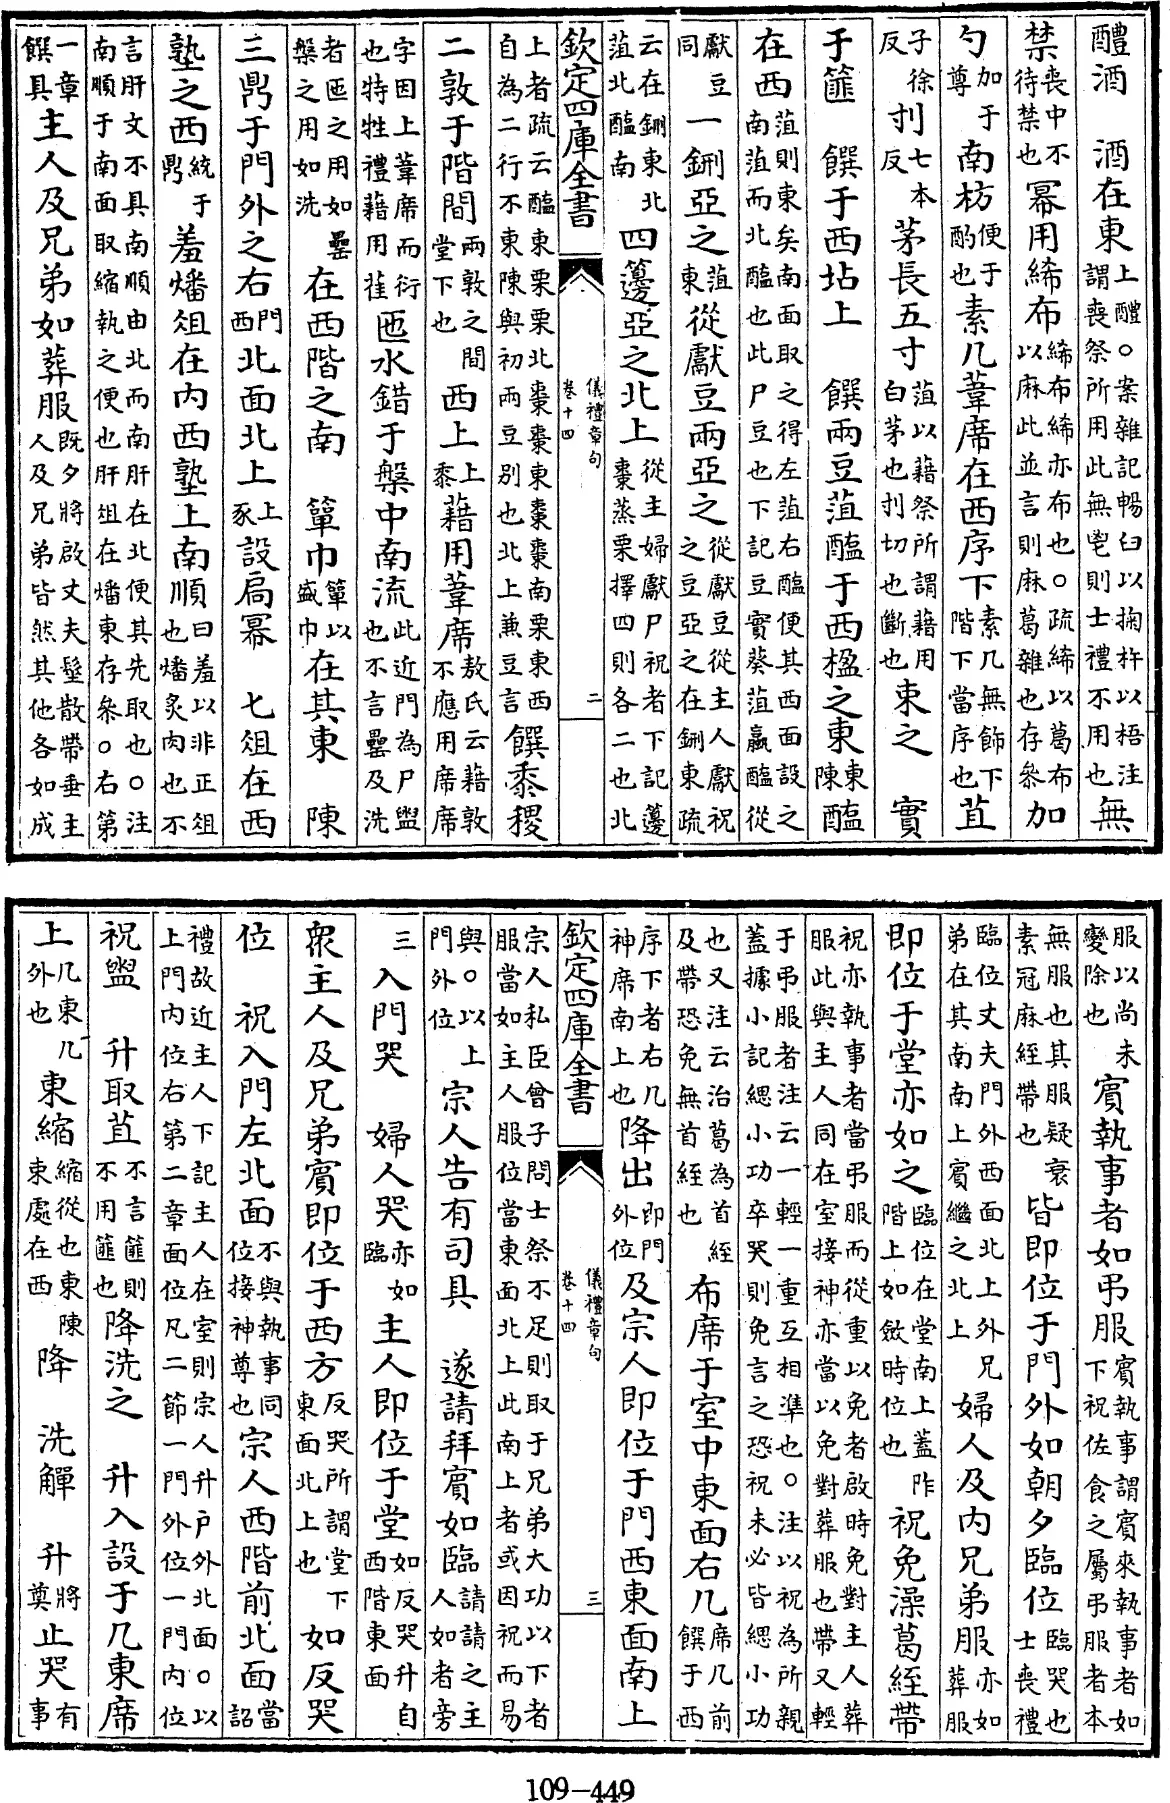 醴酒　酒在東上醴○案雜記暢臼以掬杵以梧注謂喪祭所用此無鬯則士禮不用也無
禁喪中不待禁也冪用絺布絺布絺亦布也○疏絺以葛布以麻此並言則麻葛雜也存叅加
勺加于尊南枋便于酌也素几葦席在西序下素几無飾下階下當序也苴
子徐反刌七本反茅長五寸苴以藉祭所謂藉用白茅也刌切也斷也束之　實
于篚　饌于西坫上　饌兩豆菹醢于西楹之東東陳醢
在西菹則東矣南面取之得左菹右醢便其西面設之南菹而北醢也此尸豆也下記豆實葵菹蠃醢從
獻豆同一鉶亞之菹東從獻豆兩亞之從獻豆從主人獻祝之豆亞之在鉶東疏
云在鉶東北菹北醢南四籩亞之北上從主婦獻尸祝者下記籩棗蒸栗擇四則各二也北
欽定四庫全書　儀禮章句　卷十四　二
上者疏云醢東栗栗北棗棗東棗棗南栗東西自為二行不東陳與初兩豆别也北上兼豆言饌黍稷
二敦于階間兩敦之間堂下也西上上黍藉用葦席敖氏云藉敦不應用席席
字因上葦席而衍也特牲禮藉用萑匜水錯于槃中南流此近門為尸盥也不言罍及洗
者匜之用如罍槃之用如洗在西階之南　簞巾簞以盛巾在其東　陳
三鼎于門外之右門西北面北上上豕設扃冪　七俎在西
塾之西統于鼎羞燔俎在内西塾上南順曰羞以非正俎也燔炙肉也不
言肝文不具南順由北而南肝在北便其先取也○注南順于南面取縮執之便也肝俎在燔東存叅○右第
一章饌具主人及兄弟如葬服既夕將啟丈夫髽散帶垂主人及兄弟皆然其他各如成
服以尚未變除也賓執事者如弔服賓執事謂賓來執事者如下祝佐食之屬弔服者本
無服也其服疑衰素冠麻絰帶也皆即位于門外如朝夕臨位臨哭也士喪禮
臨位丈夫門外西面北上外兄弟在其南南上賓繼之北上婦人及内兄弟服亦如葬服
即位于堂亦如之臨位在堂南上蓋阼階上如斂時位也祝免澡葛絰帶
祝亦執事者當弔服而從重以免者啟時免對主人葬服此與主人同在室接神亦當以免對葬服也帶又輕
于弔服者注云一輕一重互相準也○注以祝為所親蓋據小記緦小功卒哭則免言之恐祝未必皆緦小功
也又注云治葛為首絰及帶恐免無首絰也布席于室中東面右几席几前饌于西
序下者右几神席南上也降出即門外位及宗人即位于門西東面南上
欽定四庫全書　儀禮章句　卷十四　三
宗人私臣曾子問士祭不足則取于兄弟大功以下者服當如主人服位當東面北上此南上者或因祝而易
與○以上門外位宗人告有司具　遂請拜賓如臨請請之主人如者旁
三入門哭　婦人哭亦如臨主人即位于堂如反哭升自西階東面
衆主人及兄弟賓即位于西方反哭所謂堂下東面北上也如反哭
位　祝入門左北面不與執事同位接神尊也宗人西階前北面當詔
禮故近主人下記主人在室則宗人升户外北面○以上門内位右第二章面位凡二節一門外位一門内位
祝盥　升取苴不言篚則不用篚也降洗之　升入設于几東席
上几東几外也東縮縮從也東陳束處在西降　洗觶　升將奠止哭有事
109-449